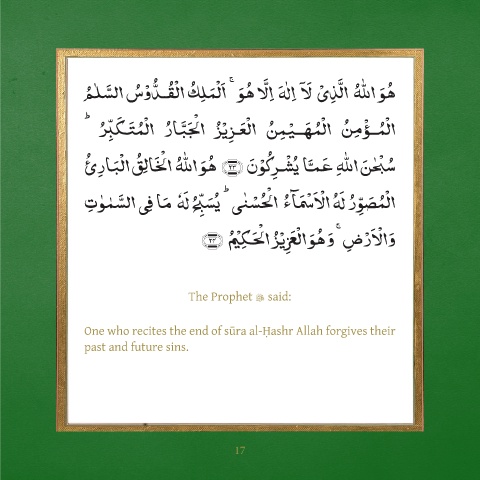 هُوَ اللّٰهُ الَّذِىْ لَآ اِلٰهَ اِلَّا هُوَ ۚ اَلْمَلِكُ الْقُدُّوْسُ السَّلٰمُ
الْمُؤْمِنُ الْمُهَيْمِنُ الْعَزِيْزُ الْجَبَّارُ الْمُتَكَبِّرُ ؕ
سُبْحٰنَ اللّٰهِ عَمَّا يُشْرِكُوْنَ ﴿۲۳﴾ هُوَ اللّٰهُ الْخَالِقُ الْبَارِئُ
الْمُصَوِّرُ لَهُ الْاَسْمَآءُ الْحُسْنٰى ؕ يُسَبِّحُ لَهٗ مَا فِى السَّمٰوٰتِ
وَالْاَرْضِ ۚ وَهُوَ الْعَزِيْزُ الْحَكِيْمُ ﴿۲۴﴾
The Prophet ﷺ said:
One who recites the end of sūra al-Ḥashr Allah forgives their
past and future sins.
17